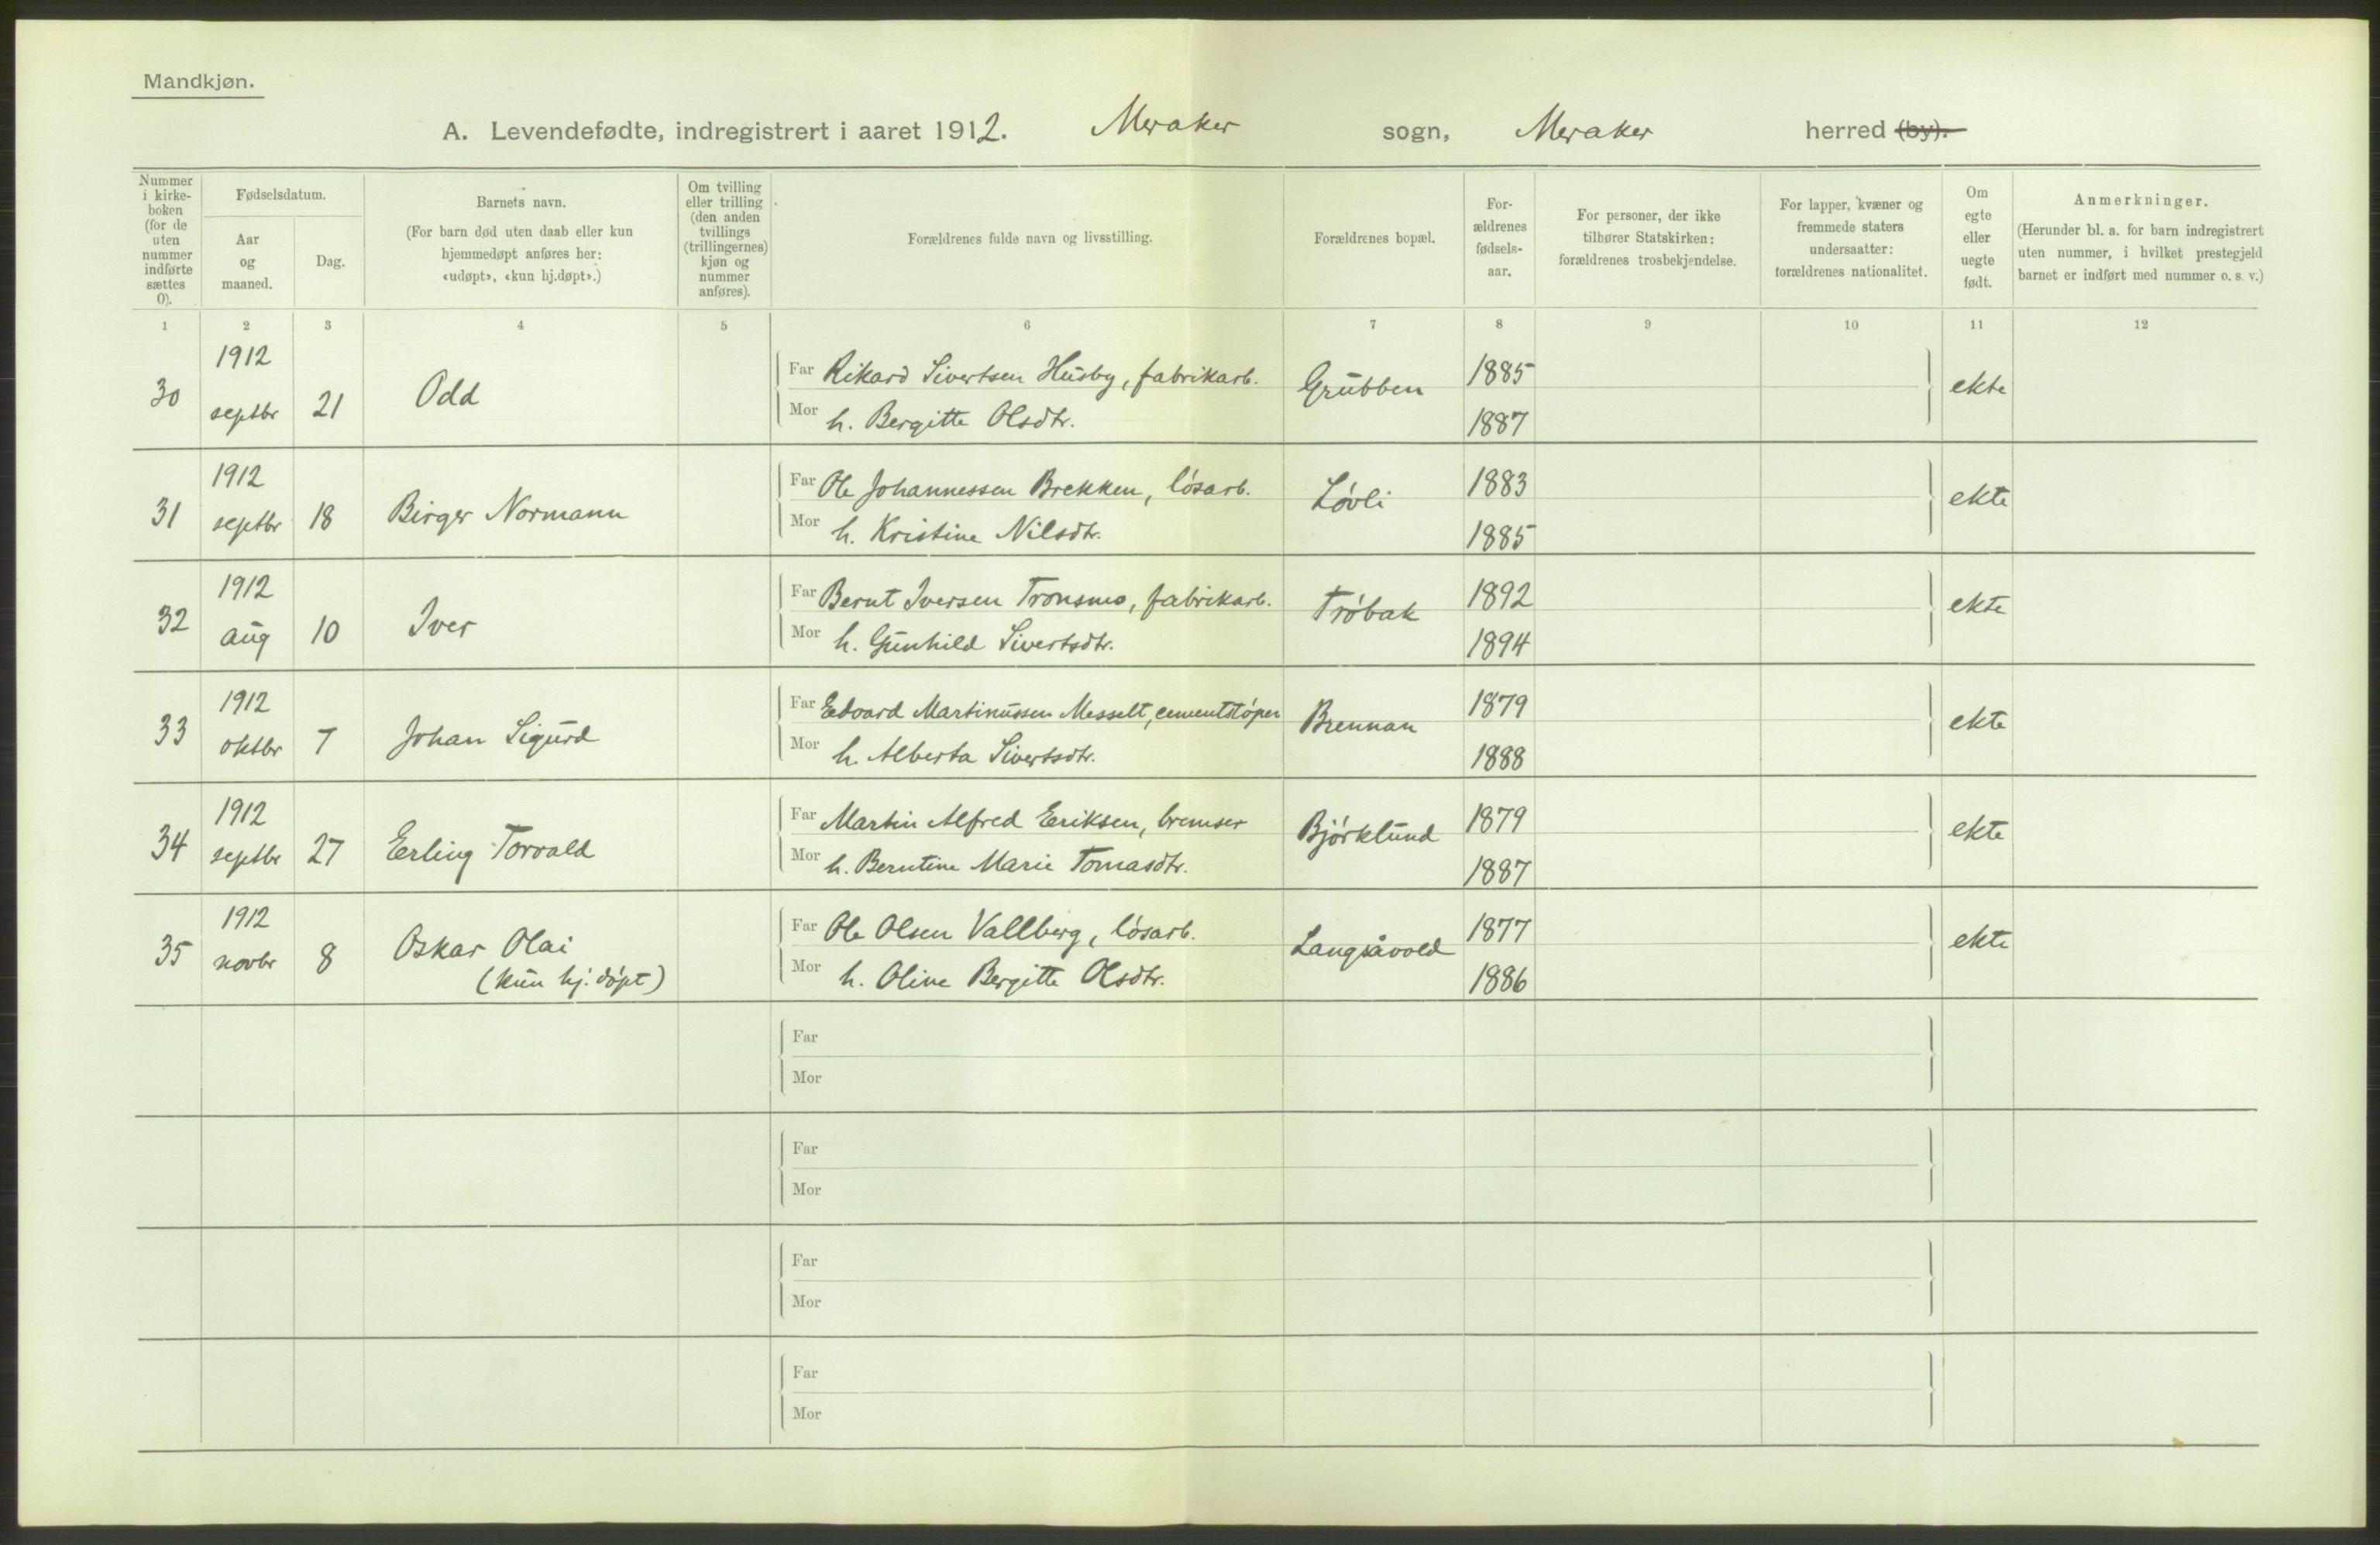 Mandkjøn.
A. Levendefødte, indregistrert i aaret 1912. Meraker sogn, Meraker herred (by).
Nummer i kirke-boken (for de uten nummer indførte sættes 0).
Fødselsdatum.
Aar og maaned.
Dag.
Barnets navn.
(For barn død uten daab eller kun hjemmedøpt anføres her: «udøpt», «kun hj.døpt».)
Om tvilling eller trilling (den anden tvillings (trillingernes) kjøn og nummer anføres).
Forældrenes fulde navn og livsstilling.
Forældrenes bopæl.
For-ældrenes fødsels-aar.
For personer, der ikke tilhører Statskirken: forældrenes trosbekjendelse.
For lapper, kvæner og fremmede staters undersaatter: forældrenes nationalitet.
Om egte eller uegte født.
Anmerkninger.
(Herunder bl. a. for barn indregistrert uten nummer, i hvilket prestegjeld barnet er indført med nummer o. s. v.)
1 2 3 4 5 6 7 8 9 10 11 12
30 1912 septbr 21 Odd Far Rikard Sivertsen Husby, fabrikarb. Grubben 1885 ekte
Mor h. Bergitte Olsdtr. 1887
31 1912 septbr 18 Birger Normann Far Ole Johannessen Brekken, løsarb. Løvli 1883 ekte
Mor h. Kristine Nilsdtr. 1885
32 1912 aug 10 Iver Far Bernt Iversen Tronsmo, fabrikarb. Trøbak 1892 ekte
Mor h. Gunhild Sivertsdtr. 1894
33 1912 oktbr 7 Johan Sigurd Far Edvard Martinussen Messelt, cementstøper Brennan 1879 ekte
Mor h. Alberta Sivertsdtr. 1888
34 1912 septbr 27 Erling Torvald Far Martin Alfred Eriksen, bremser Bjørklund 1879 ekte
Mor h. Berntine Marie Tomasdtr. 1887
35 1912 novbr 8 Oskar Olai Far Ole Olsen Vallberg, løsarb. Langsåvold 1877 ekte
(kun hj. døpt) Mor h. Oline Bergitte Olsdtr. 1886
Far
Mor
Far
Mor
Far
Mor
Far
Mor